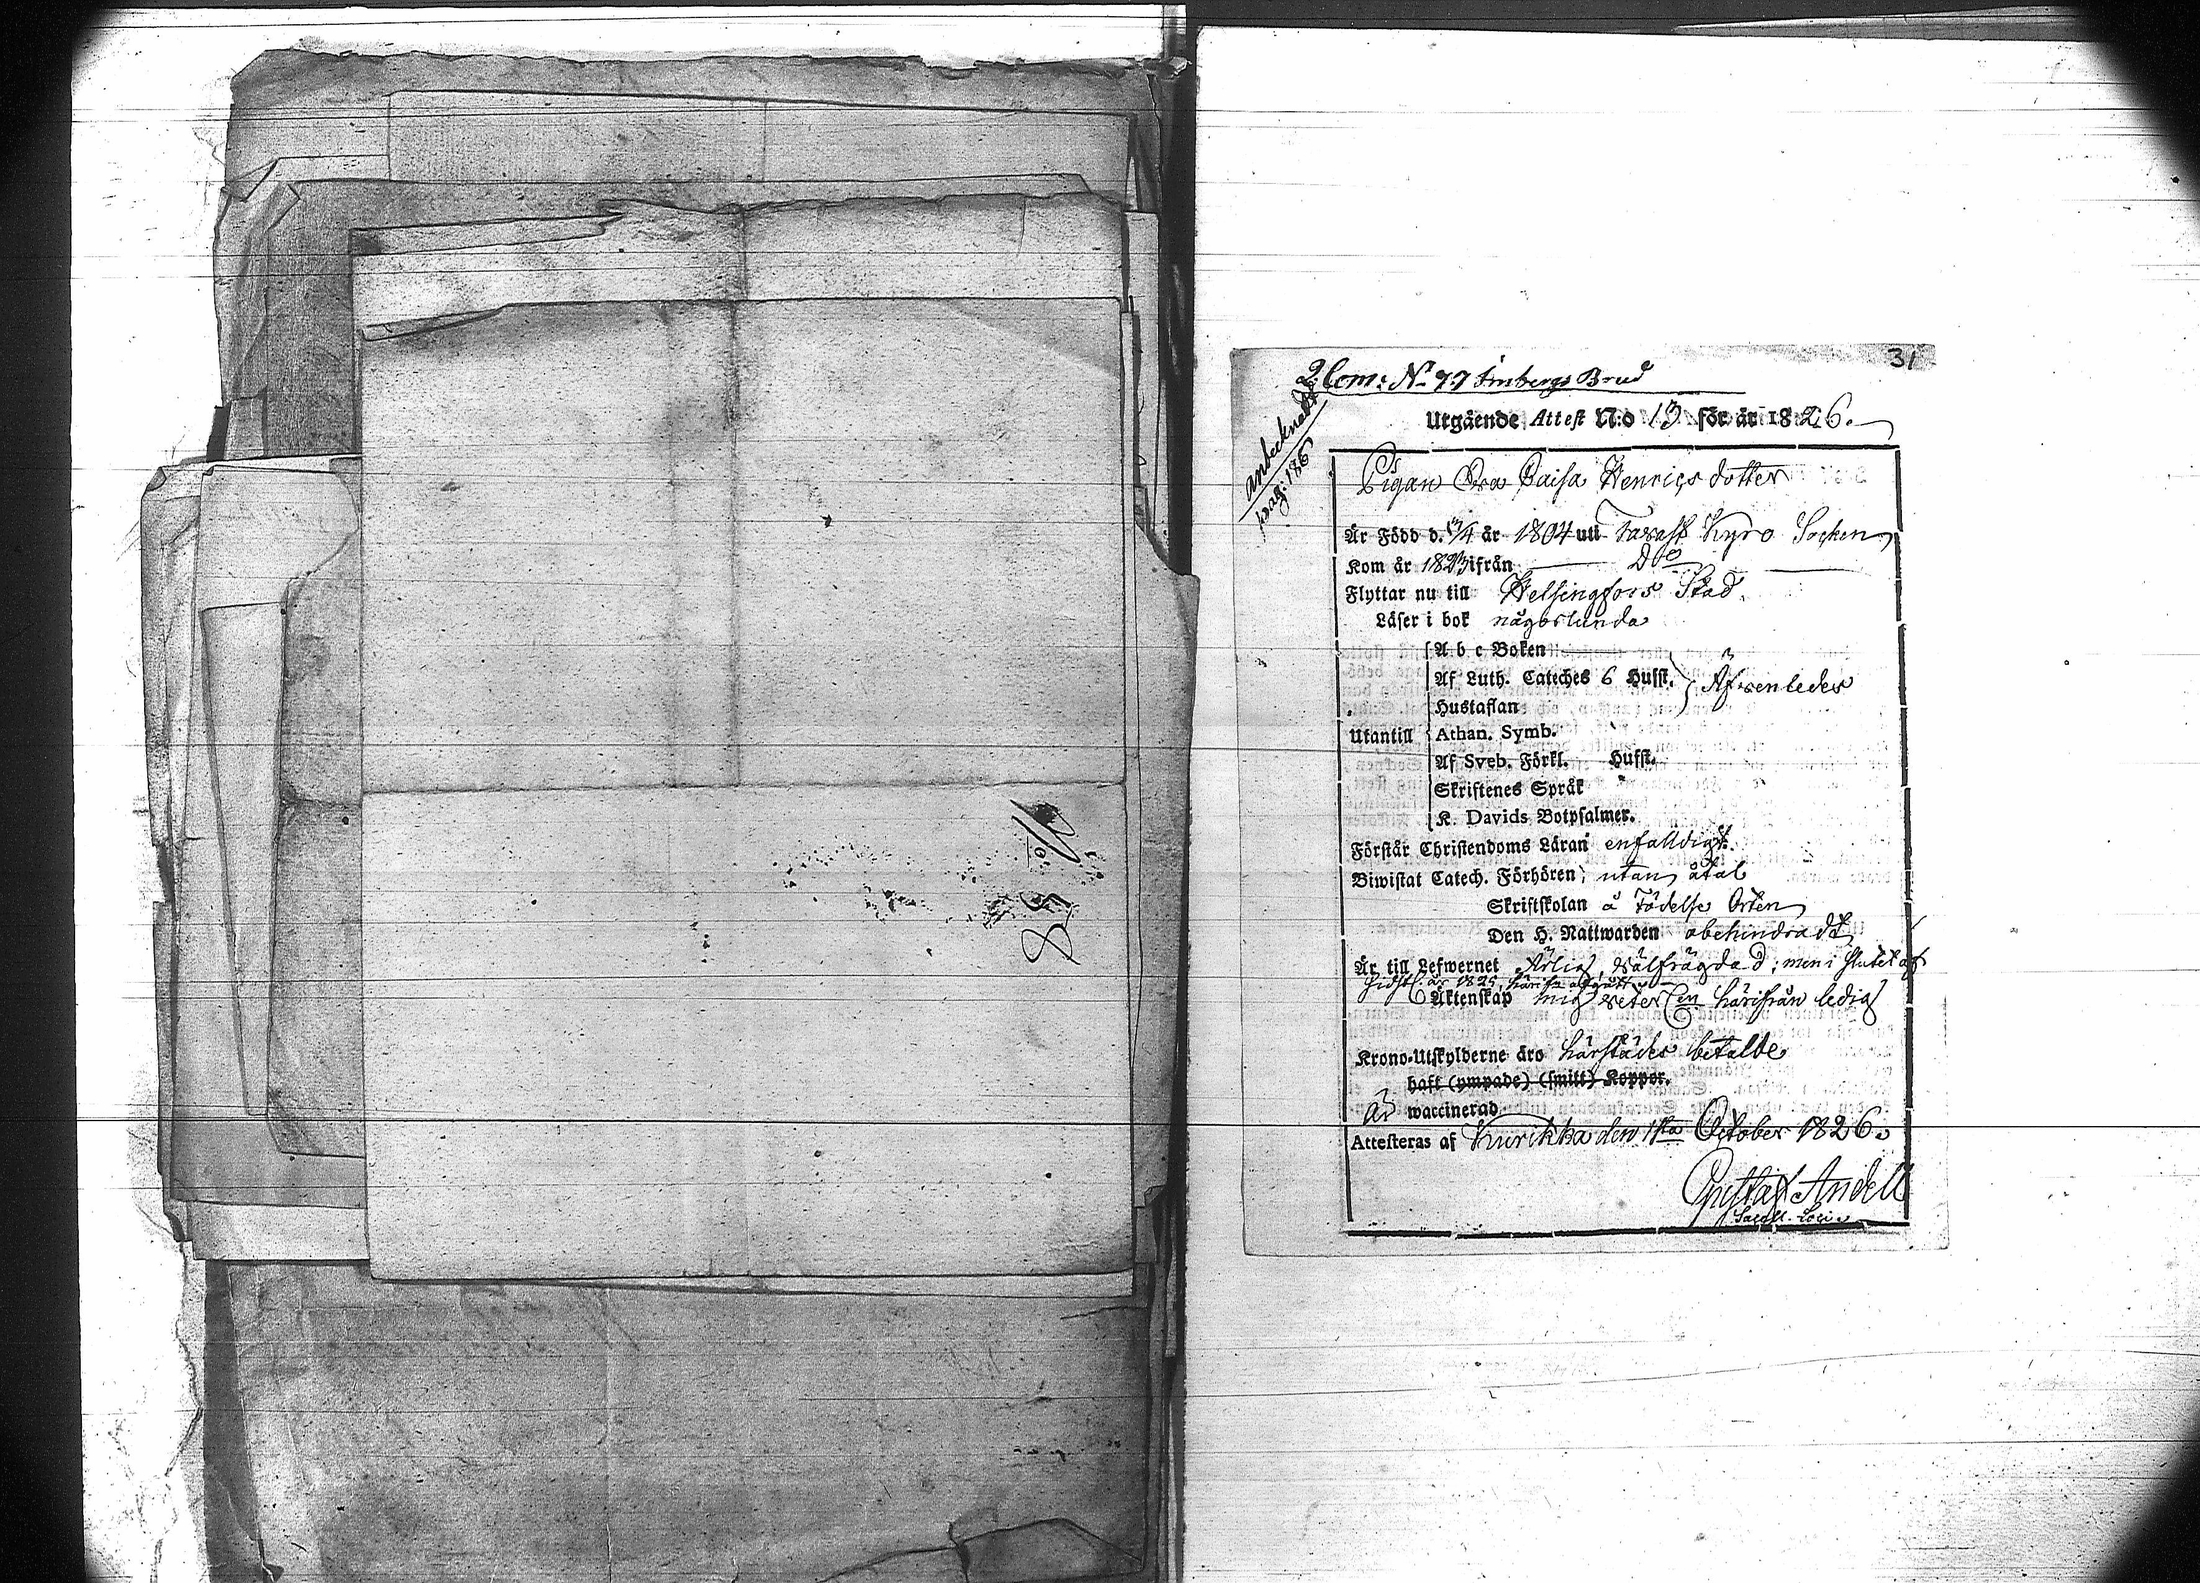 88
31
2 Com: No 77 Smbergs Brud
antecknadt
pag: 186
Utgående Attest N:o 13 för år 1826.
Pigan Eva Caisa Henricsdotter
Är Född d. /4 år 1804 uti Tavast Kyro Socken
Kom år 1823 ifrån D:o
Flyttar nu till Helsingfors Stad.
Läser i bok någorlunda
A b c Boken
Af Luth. Cateches 6 Hufst. Äfvenledes
Hustaflan
Utantill Athan. Symb.
Af Sveb. Förkl. Hufst.
Skriftenes Språk
K. Davids Botpsalmer.
Förstår Christendoms Läran enfalldigt.
Biwistat Catech. Förhören; utan åtal
Skriftskolan å Födelse Orten
Den H. Nattwarden obehindradt
Är till Lefwernet Ärlig, välfrägdad; men i slutet af
sidstl. år 1825, härifr. afgått
Äktenskap mig veterl:en härifrån ledig
Krono-Utskylderne äro härstädes betalde
haft (ympade) (smitt) Koppor.
är waccinerad
Attesteras af Kurikka den 1sta October 1826.
Gustaf Andell
Sacell. Loci.